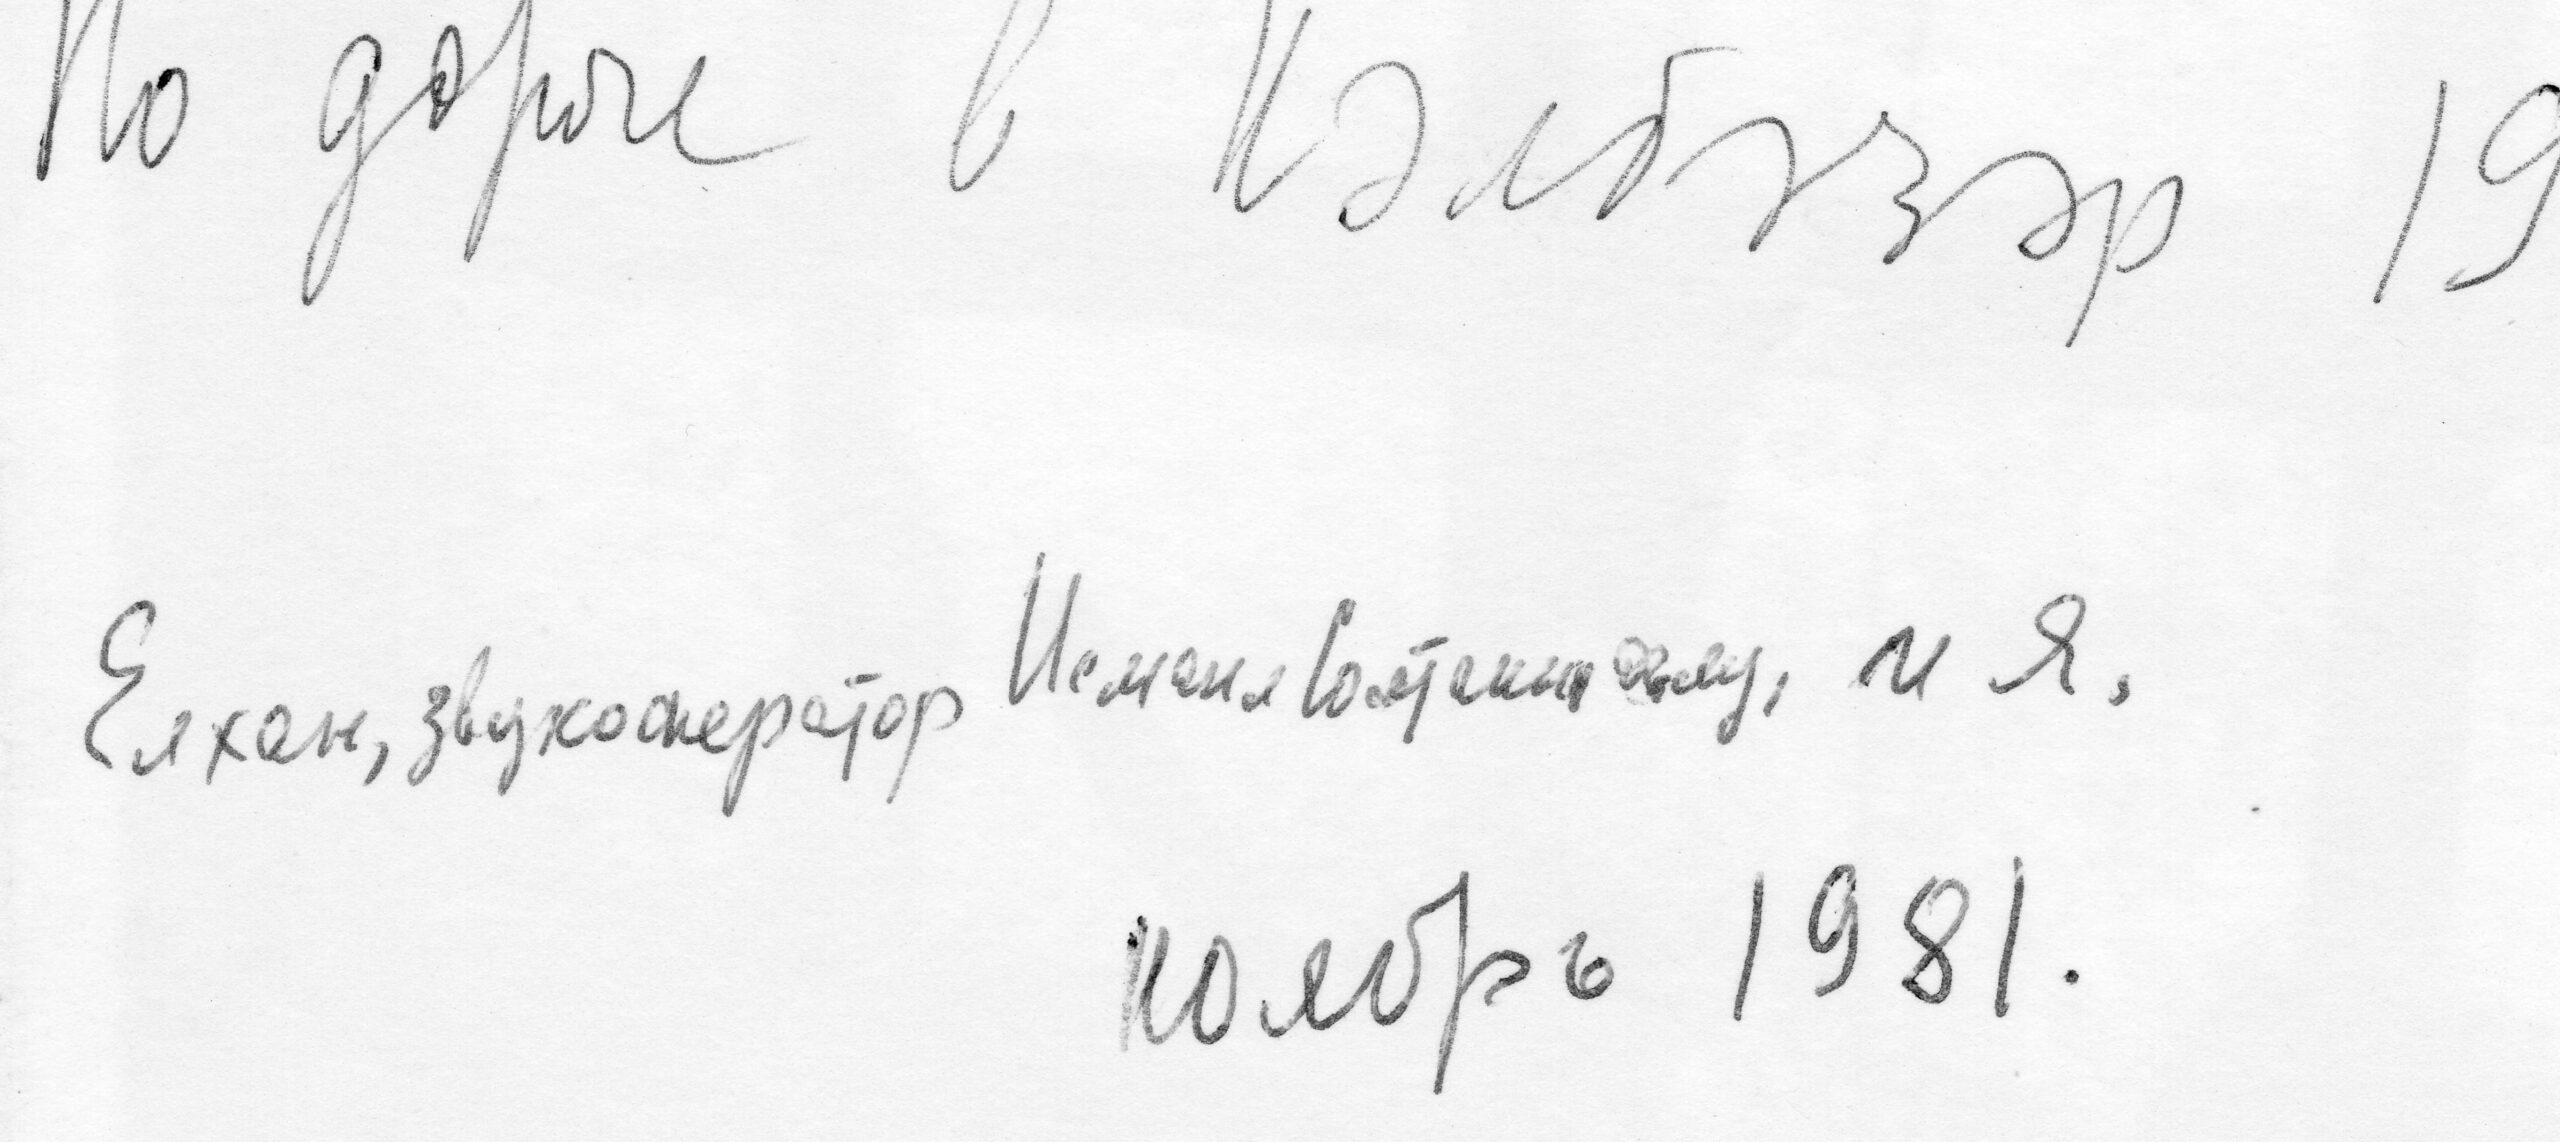 По дороге в Кәлбәҙәр 19
Елхан, звукооператор Исмаил и Я.
ноябрь 1981.